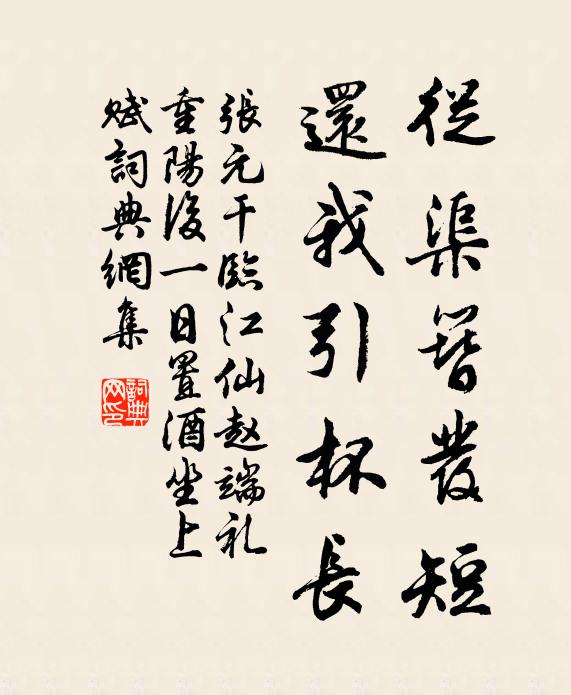 從渠簪發短
還我引杯長
張元干臨江仙赵端礼
重陽後一日置酒坐上
賦詞典網集
詞典网印